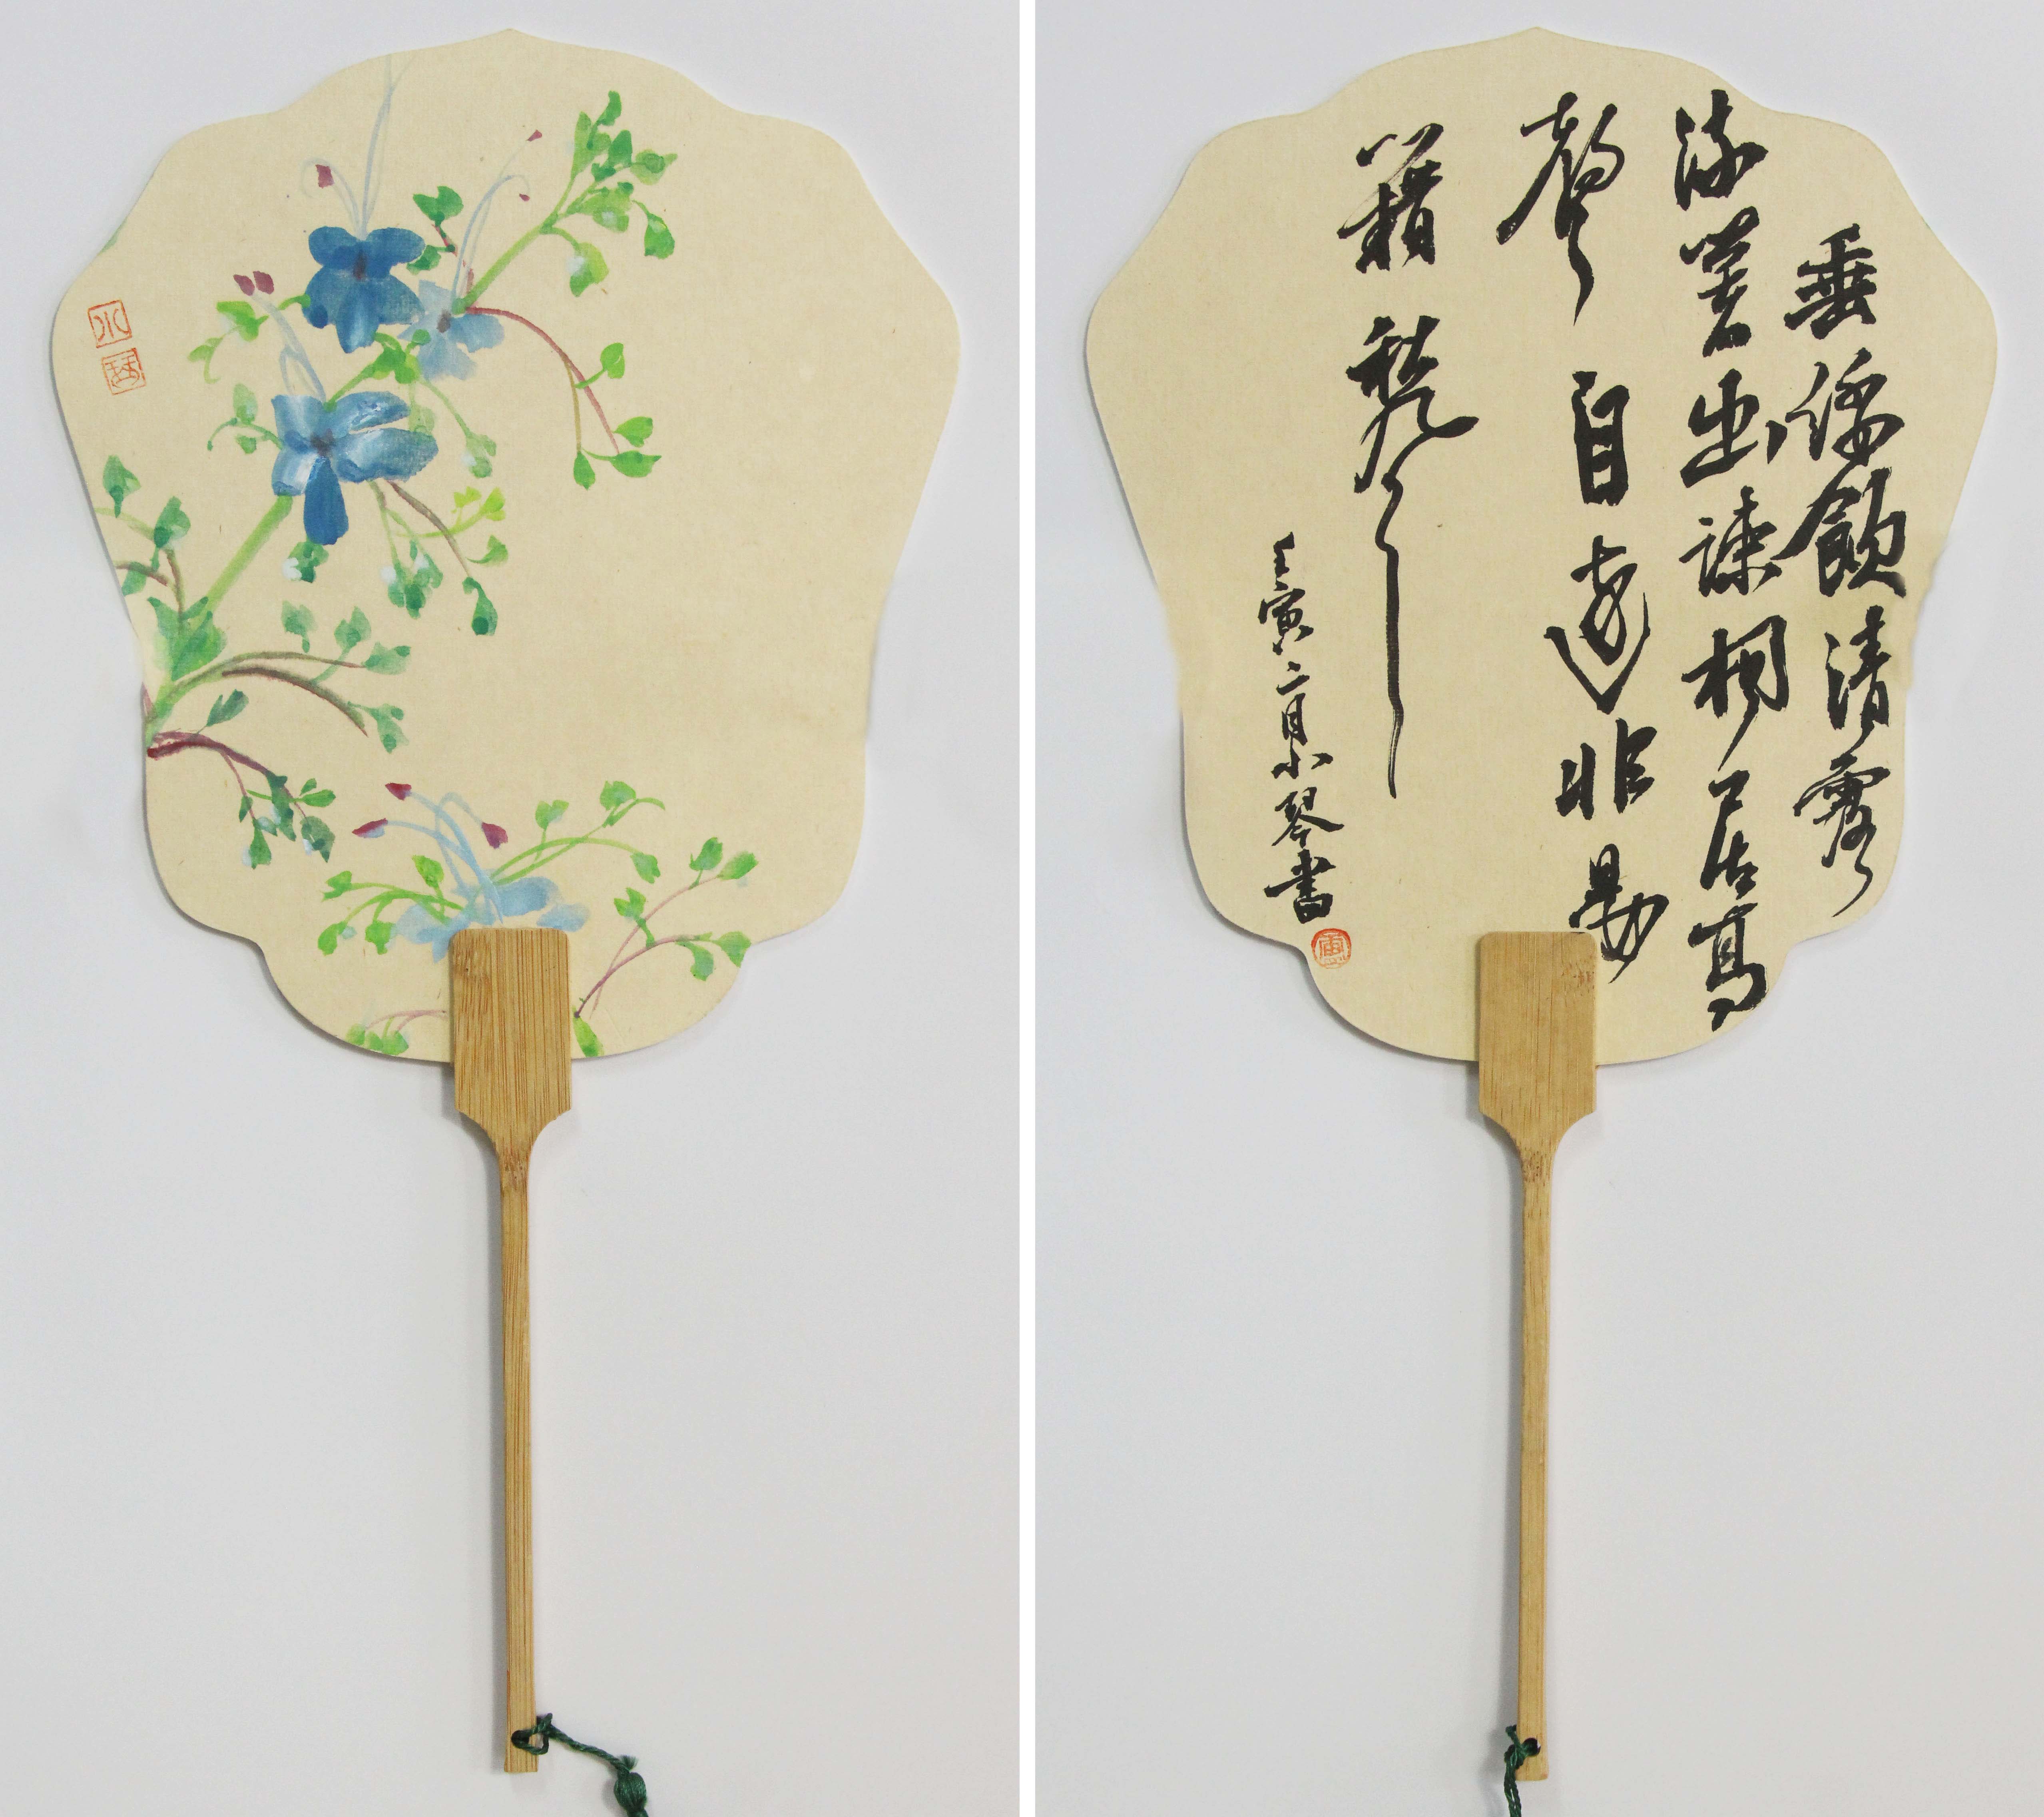 小
琴
垂緌飲清露
流響出疎桐居高
聲自遠非是
藉秋風
壬寅二月小琴書